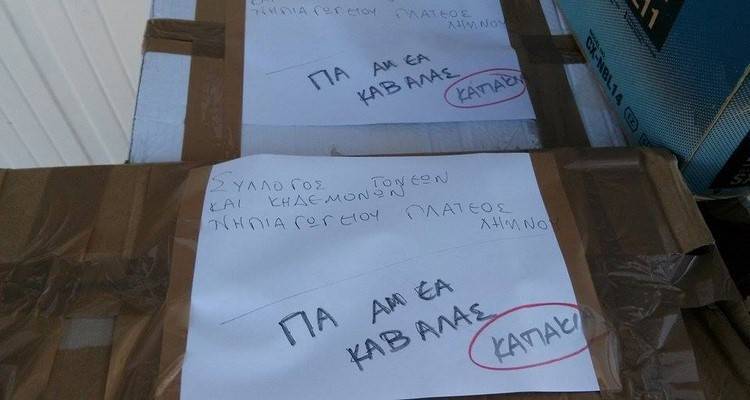 ΝΗΠΙΑΓΩΓΕΙΟΥ ΠΛΑΤΕΟΣ
ΛΗΜΝΟΥ
ΓΙΑ ΑΜΕΑ
ΚΑΒΑΛΑΣ ΚΑΠΑΚΙ
GX-NBL14
ΣΥΛΛΟΓΟΣ ΓΟΝΕΩΝ
ΚΑΙ ΚΗΔΕΜΟΝΩΝ
ΝΗΠΙΑΓΩΓΕΙΟΥ ΠΛΑΤΕΟΣ
ΛΗΜΝΟΥ
ΓΙΑ ΑΜΕΑ
ΚΑΒΑΛΑΣ ΚΑΠΑΚΙ